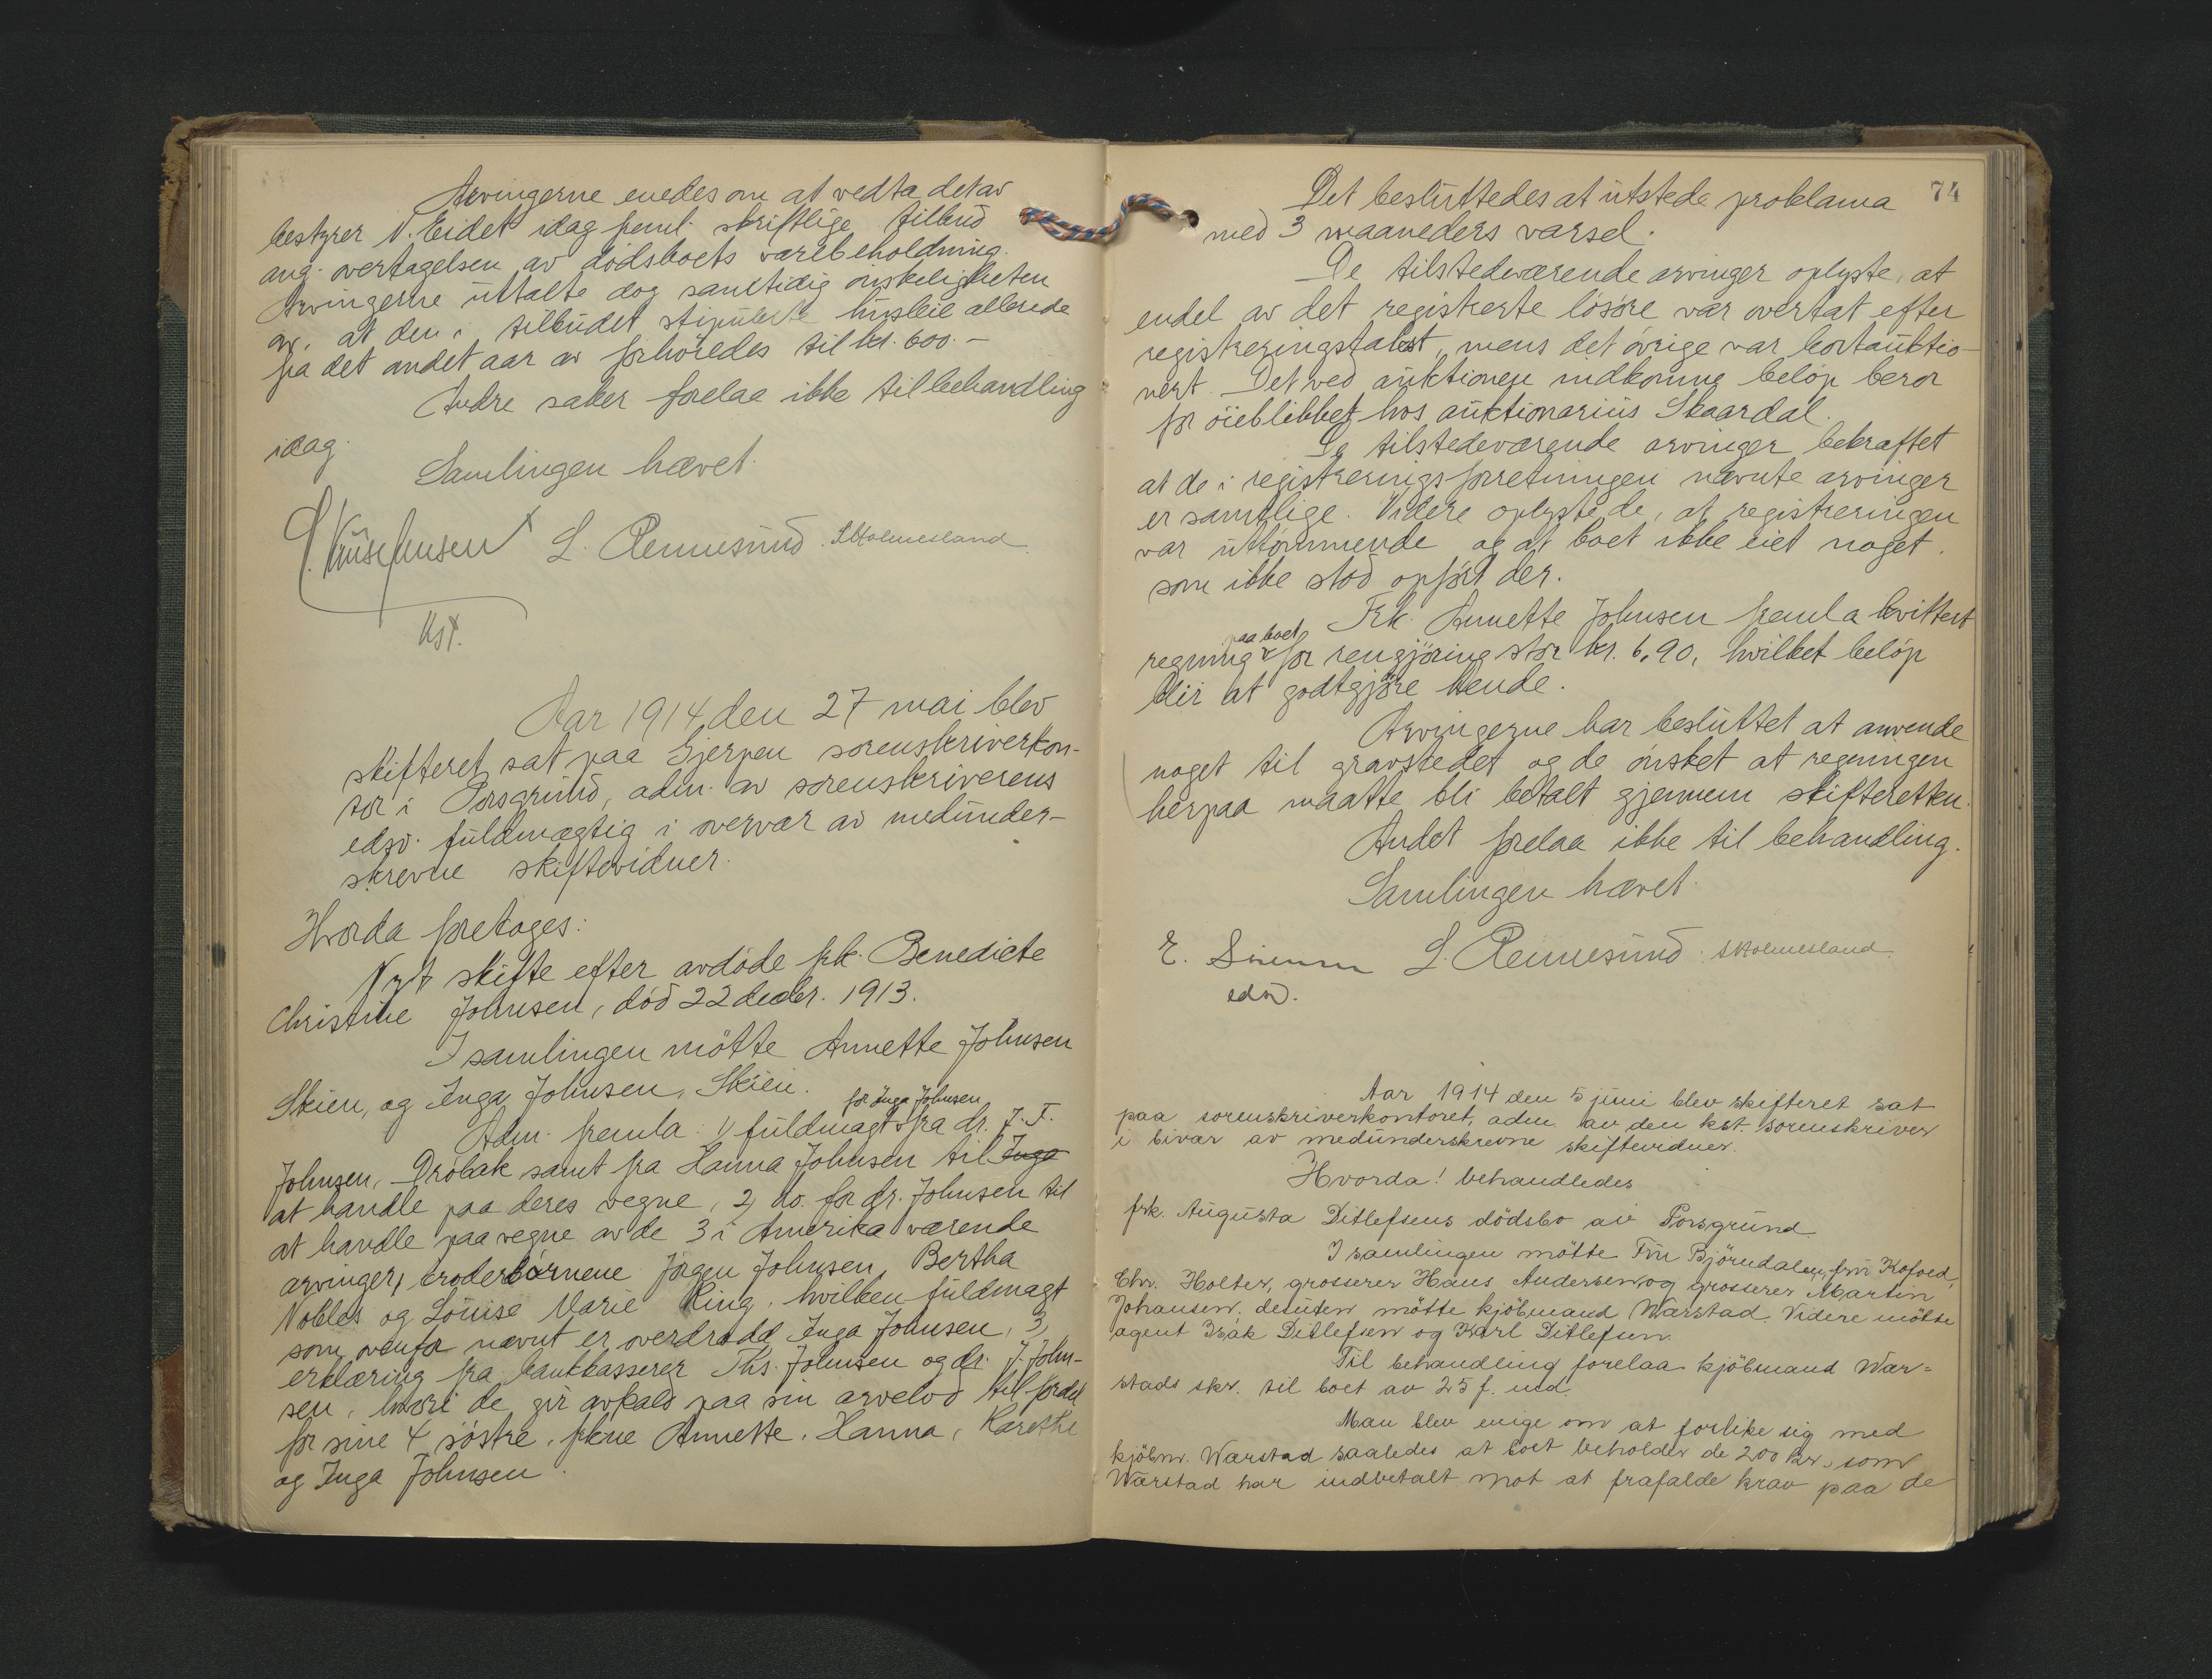 Arvingerne enedes om at vedta det av
bestyrer N. Eidet idag freml. skriftlige tilbud
ang. overtagelsen av dödsboets varebeholdning.
Arvingerne uttalte dog samtidig önskeligheten
av, at den i tilbudet stipulerte husleie allerede
fra det andet aar av forhöiedes til kr. 600.-
Andre saker forelaa ikke til behandling
idag.
Samlingen hævet.
L. Rennesund. Holmesland
Kst.
Aar 1914 den 27 mai blev
skifteret sat paa Gjerpen sorenskriverkon-
tor i Porsgrund, adm. av sorenskriverens
edsv. fuldmægtig i overvær av medunder-
skrevne skiftevidner.
Hvorda foretoges:
Nyt skifte efter avdöde frk. Benedicte
Christine Johnsen, död 22 decbr. 1913.
I samlingen mötte Annette Johnsen
Skien, og Inga Johnsen, Skien.
for Inga Johnsen
Adm. fremla: 1) fuldmagt fra dr. J. F.
Johnsen, Dröbak samt fra Hanna Johnsen til Inga
at handle paa deres vegne, 2) do. for dr. Johnsen til
at handle paa vegne av de 3 i Amerika værende
arvinger, broderbörnene Jörgen Johnsen, Bertha
Nobles og Louise Marie Ring, hvilken fuldmagt
som ovenfor nævnt er overdradd Inga Johnsen, 3)
erklæring fra bankkasserer Ths. Johnsen og dr. J. John-
sen, hvori de gir avkald paa sin arvelod til fordel
for sine 4 söstre, frkne Annette, Hanna, Karethe
og Inga Johnsen.
74
Det besluttedes at utstede proklama
med 3 maaneders varsel.
De tilstedeværende arvinger oplyste, at
endel av det registrerte lösöre var overtat efter
registreringstakst, mens det övrige var bortauktio-
nert. Det ved auktionen indkomne belöp beror
for öieblikket hos auktionarius Skaardal.
De tilstedeværende arvinger bekræftet
at de i registreringsforretningen nævnte arvinger
er samtlige. Videre oplyste de, at registreringen
var uttömmende og at boet ikke eiet noget,
som ikke stod opfört der.
Frk. Annette Johnsen fremla kvittert
paa boet
regning for rengjöring stor kr. 6,90, hvilket belöp
blir at godtgjöre hende.
Arvingerne har besluttet at anvende
noget til gravstedet og de önsket at regningen
herpaa maatte bli betalt gjennem skifteretten.
Andet forelaa ikke til behandling.
Samlingen hævet.
E. L. Rennesund. Holmesland
edsv.
Aar 1914 den 5 juni blev skifteret sat
paa sorenskriverkontoret, adm. av den kst. sorenskriver
i bivær av medunderskrevne skiftevidner.
Hvorda! behandledes
frk. Augusta Ditlefsens dödsbo av Porsgrund
I samlingen mötte Fru Björndalen, fru Kofoed,
Chr. Holter, grosserer Hans Andersen og grosserer Martin
Johansen, desuten mötte kjöbmand Warstad. Videre mötte
agent Isak Ditlefsen og Karl Ditlefsen.
Til behandling forelaa kjöbmand War=
stads skr. til boet av 25 f. md.
Man blev enige om at forlike sig med
kjöbm. Warstad saaledes at boet beholder de 200 kr. som
Warstad har indbetalt mot at frafalde krav paa de